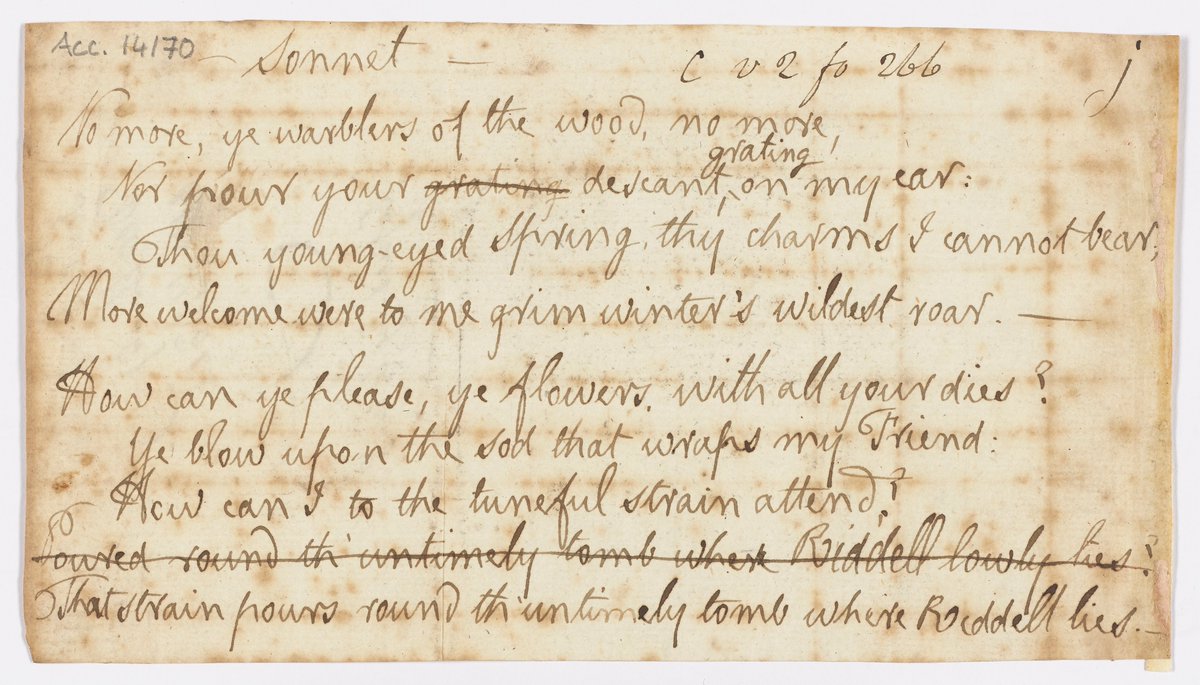 Acc. 14170
— Sonnet —
C v 2 fo 266
j
No more, ye warblers of the wood, no more,
grating
Nor pour your grating descant, on my ear:
Thou young-eyed spring, thy charms I cannot bear;
More welcome were to me grim winter's wildest roar. —
How can ye please, ye flowers, with all your dies?
Ye blow upon the sod that wraps my Friend:
How can I to the tuneful strain attend?
Poured round th' untimely tomb where Riddell lowly lies?
That strain pours round th' untimely tomb where Riddell lies. —